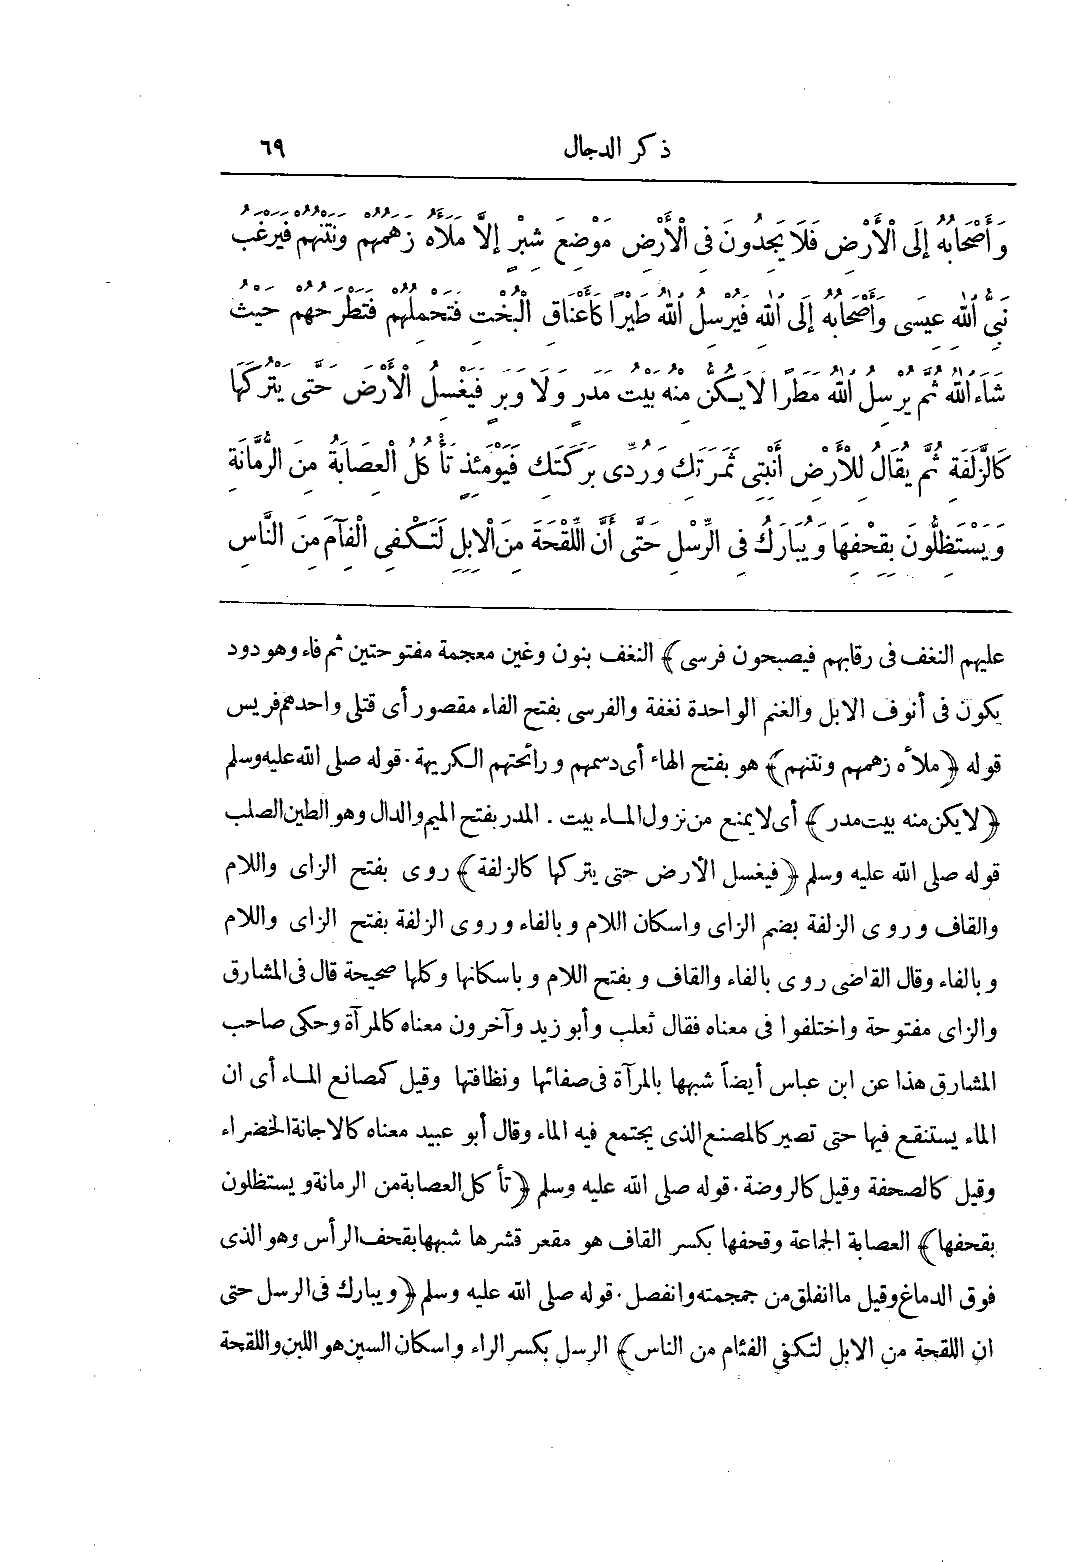 ذكر الدجال ٦٩
وَأَصْحَابُهُ إِلَى الْأَرْضِ فَلَا يَجِدُونَ فِى الْأَرْضِ مَوْضِعَ شِبْرٍ إِلَّا مَلَأَهُ زَهَمُهُمْ وَنَتْنُهُمْ فَيَرْغَبُ
نَبِىُّ اللهِ عِيسَى وَأَصْحَابُهُ إِلَى اللهِ فَيُرْسِلُ اللهُ طَيْرًا كَأَعْنَاقِ الْبُخْتِ فَتَحْمِلُهُمْ فَتَطْرَحُهُمْ حَيْثُ
شَاءَ اللهُ ثُمَّ يُرْسِلُ اللهُ مَطَرًا لَا يَكُنُّ مِنْهُ بَيْتُ مَدَرٍ وَلَا وَبَرٍ فَيَغْسِلُ الْأَرْضَ حَتَّى يَتْرُكَهَا
كَالزَّلَفَةِ ثُمَّ يُقَالُ لِلْأَرْضِ أَنْبِتِى ثَمَرَتَكِ وَرُدِّى بَرَكَتَكِ فَيَوْمَئِذٍ تَأْكُلُ الْعِصَابَةُ مِنَ الرُّمَّانَةِ
وَيَسْتَظِلُّونَ بِقِحْفِهَا وَيُبَارَكُ فِى الرِّسْلِ حَتَّى أَنَّ اللِّقْحَةَ مِنَ الْإِبِلِ لَتَكْفِى الْفِآمَ مِنَ النَّاسِ
عليهم النغف فى رقابهم فيصبحون فرسى﴾ النغف بنون وغين معجمة مفتوحتين ثم فاء وهو دود
يكون فى أنوف الابل والغنم الواحدة نغفة والفرسى بفتح الفاء مقصور أى قتلى واحدهم فريس
قوله ﴿ملأه زهمهم ونتنهم﴾ هو بفتح الهاء أى دسمهم ورائحتهم الكريهة . قوله صلى الله عليه وسلم
﴿لا يكن منه بيت مدر﴾ أى لا يمنع من نزول الماء بيت . المدر بفتح الميم والدال وهو الطين الصلب
قوله صلى الله عليه وسلم ﴿فيغسل الأرض حتى يتركها كالزلفة﴾ روى بفتح الزاى واللام
والقاف وروى الزلفة بضم الزاى واسكان اللام وبالفاء وروى الزلفة بفتح الزاى واللام
وبالفاء وقال القاضى روى بالفاء والقاف وبفتح اللام وباسكانها وكلها صحيحة قال فى المشارق
والزاى مفتوحة واختلفوا فى معناه فقال ثعلب وأبو زيد وآخرون معناه كالمرآة وحكى صاحب
المشارق هذا عن ابن عباس أيضاً شبهها بالمرآة فى صفائها ونظافتها وقيل كمصانع الماء أى ان
الماء يستنقع فيها حتى تصير كالمصنع الذى يجتمع فيه الماء وقال أبو عبيد معناه كالاجانة الخضراء
وقيل كالصحفة وقيل كالروضة . قوله صلى الله عليه وسلم ﴿تأكل العصابة من الرمانة ويستظلون
بقحفها﴾ العصابة الجماعة وقحفها بكسر القاف هو مقعر قشرها شبهها بقحف الرأس وهو الذى
فوق الدماغ وقيل ما انفلق من جمجمته وانفصل . قوله صلى الله عليه وسلم ﴿ويبارك فى الرسل حتى
ان اللقحة من الابل لتكفى الفئام من الناس﴾ الرسل بكسر الراء واسكان السين هو اللبن واللقحة